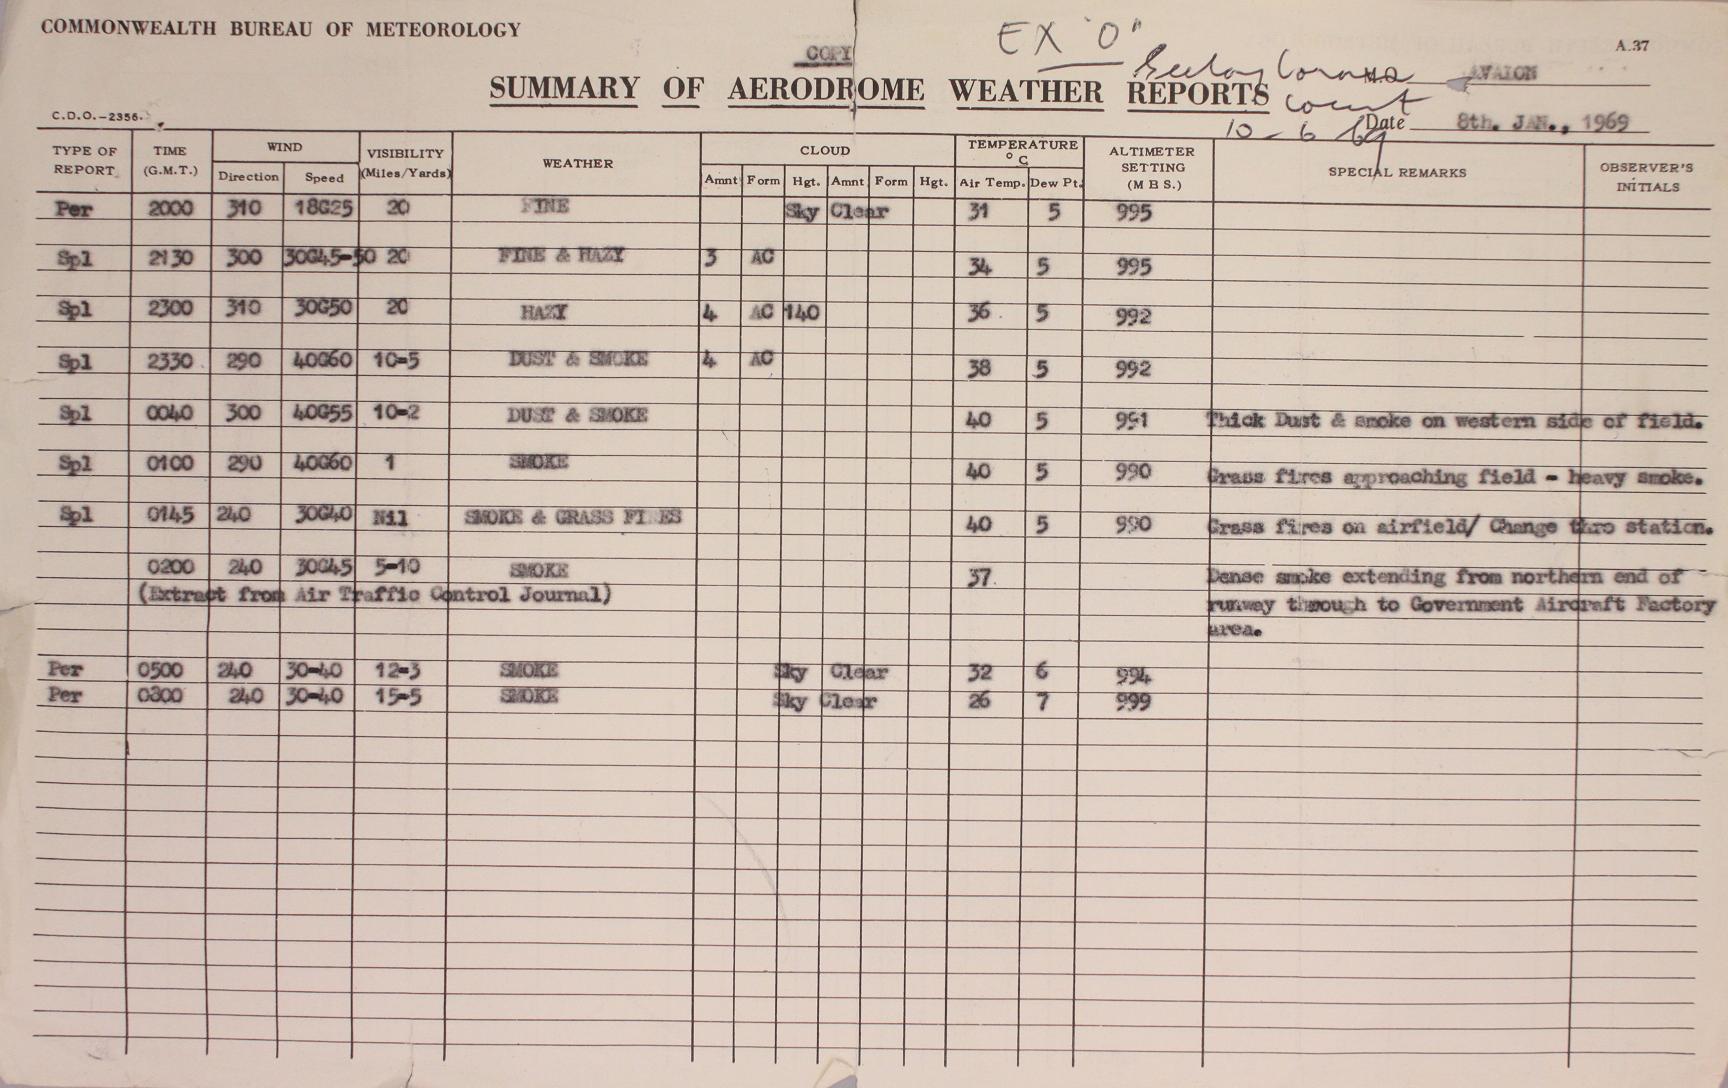 COMMONWEALTH BUREAU OF METEOROLOGY
COPY
EX "O"
A.37
SUMMARY OF AERODROME WEATHER REPORTS
M.O. AVALON
Court
10-6-69
C.D.O.-2356.
Date 8th. JAN., 1969
TYPE OF REPORT TIME (G.M.T.) WIND Direction Speed VISIBILITY (Miles/Yards) WEATHER CLOUD Amnt Form Hgt. Amnt Form Hgt. TEMPERATURE °C Air Temp. Dew Pt. ALTIMETER SETTING (M B S.) SPECIAL REMARKS OBSERVER'S INITIALS
Per 2000 310 18G25 20 FINE Sky Clear 31 5 995
Spl 2130 300 30G45-50 20 FINE & HAZY 3 AC 34 5 995
Spl 2300 310 30G50 20 HAZY 4 AC 140 36 5 992
Spl 2330 290 40G60 10-5 DUST & SMOKE 4 AC 38 5 992
Spl 0040 300 40G55 10-2 DUST & SMOKE 40 5 991 Thick Dust & smoke on western side of field.
Spl 0100 290 40G60 1 SMOKE 40 5 990 Grass fires approaching field - heavy smoke.
Spl 0145 240 30G40 Nil SMOKE & GRASS FIRES 40 5 990 Grass fires on airfield/ Change thro station.
0200 240 30G45 5-10 SMOKE 37. Dense smoke extending from northern end of
(Extract from Air Traffic Control Journal) runway through to Government Aircraft Factory
area.
Per 0500 240 30-40 12-3 SMOKE Sky Clear 32 6 994
Per 0800 240 30-40 15-5 SMOKE Sky Clear 26 7 999